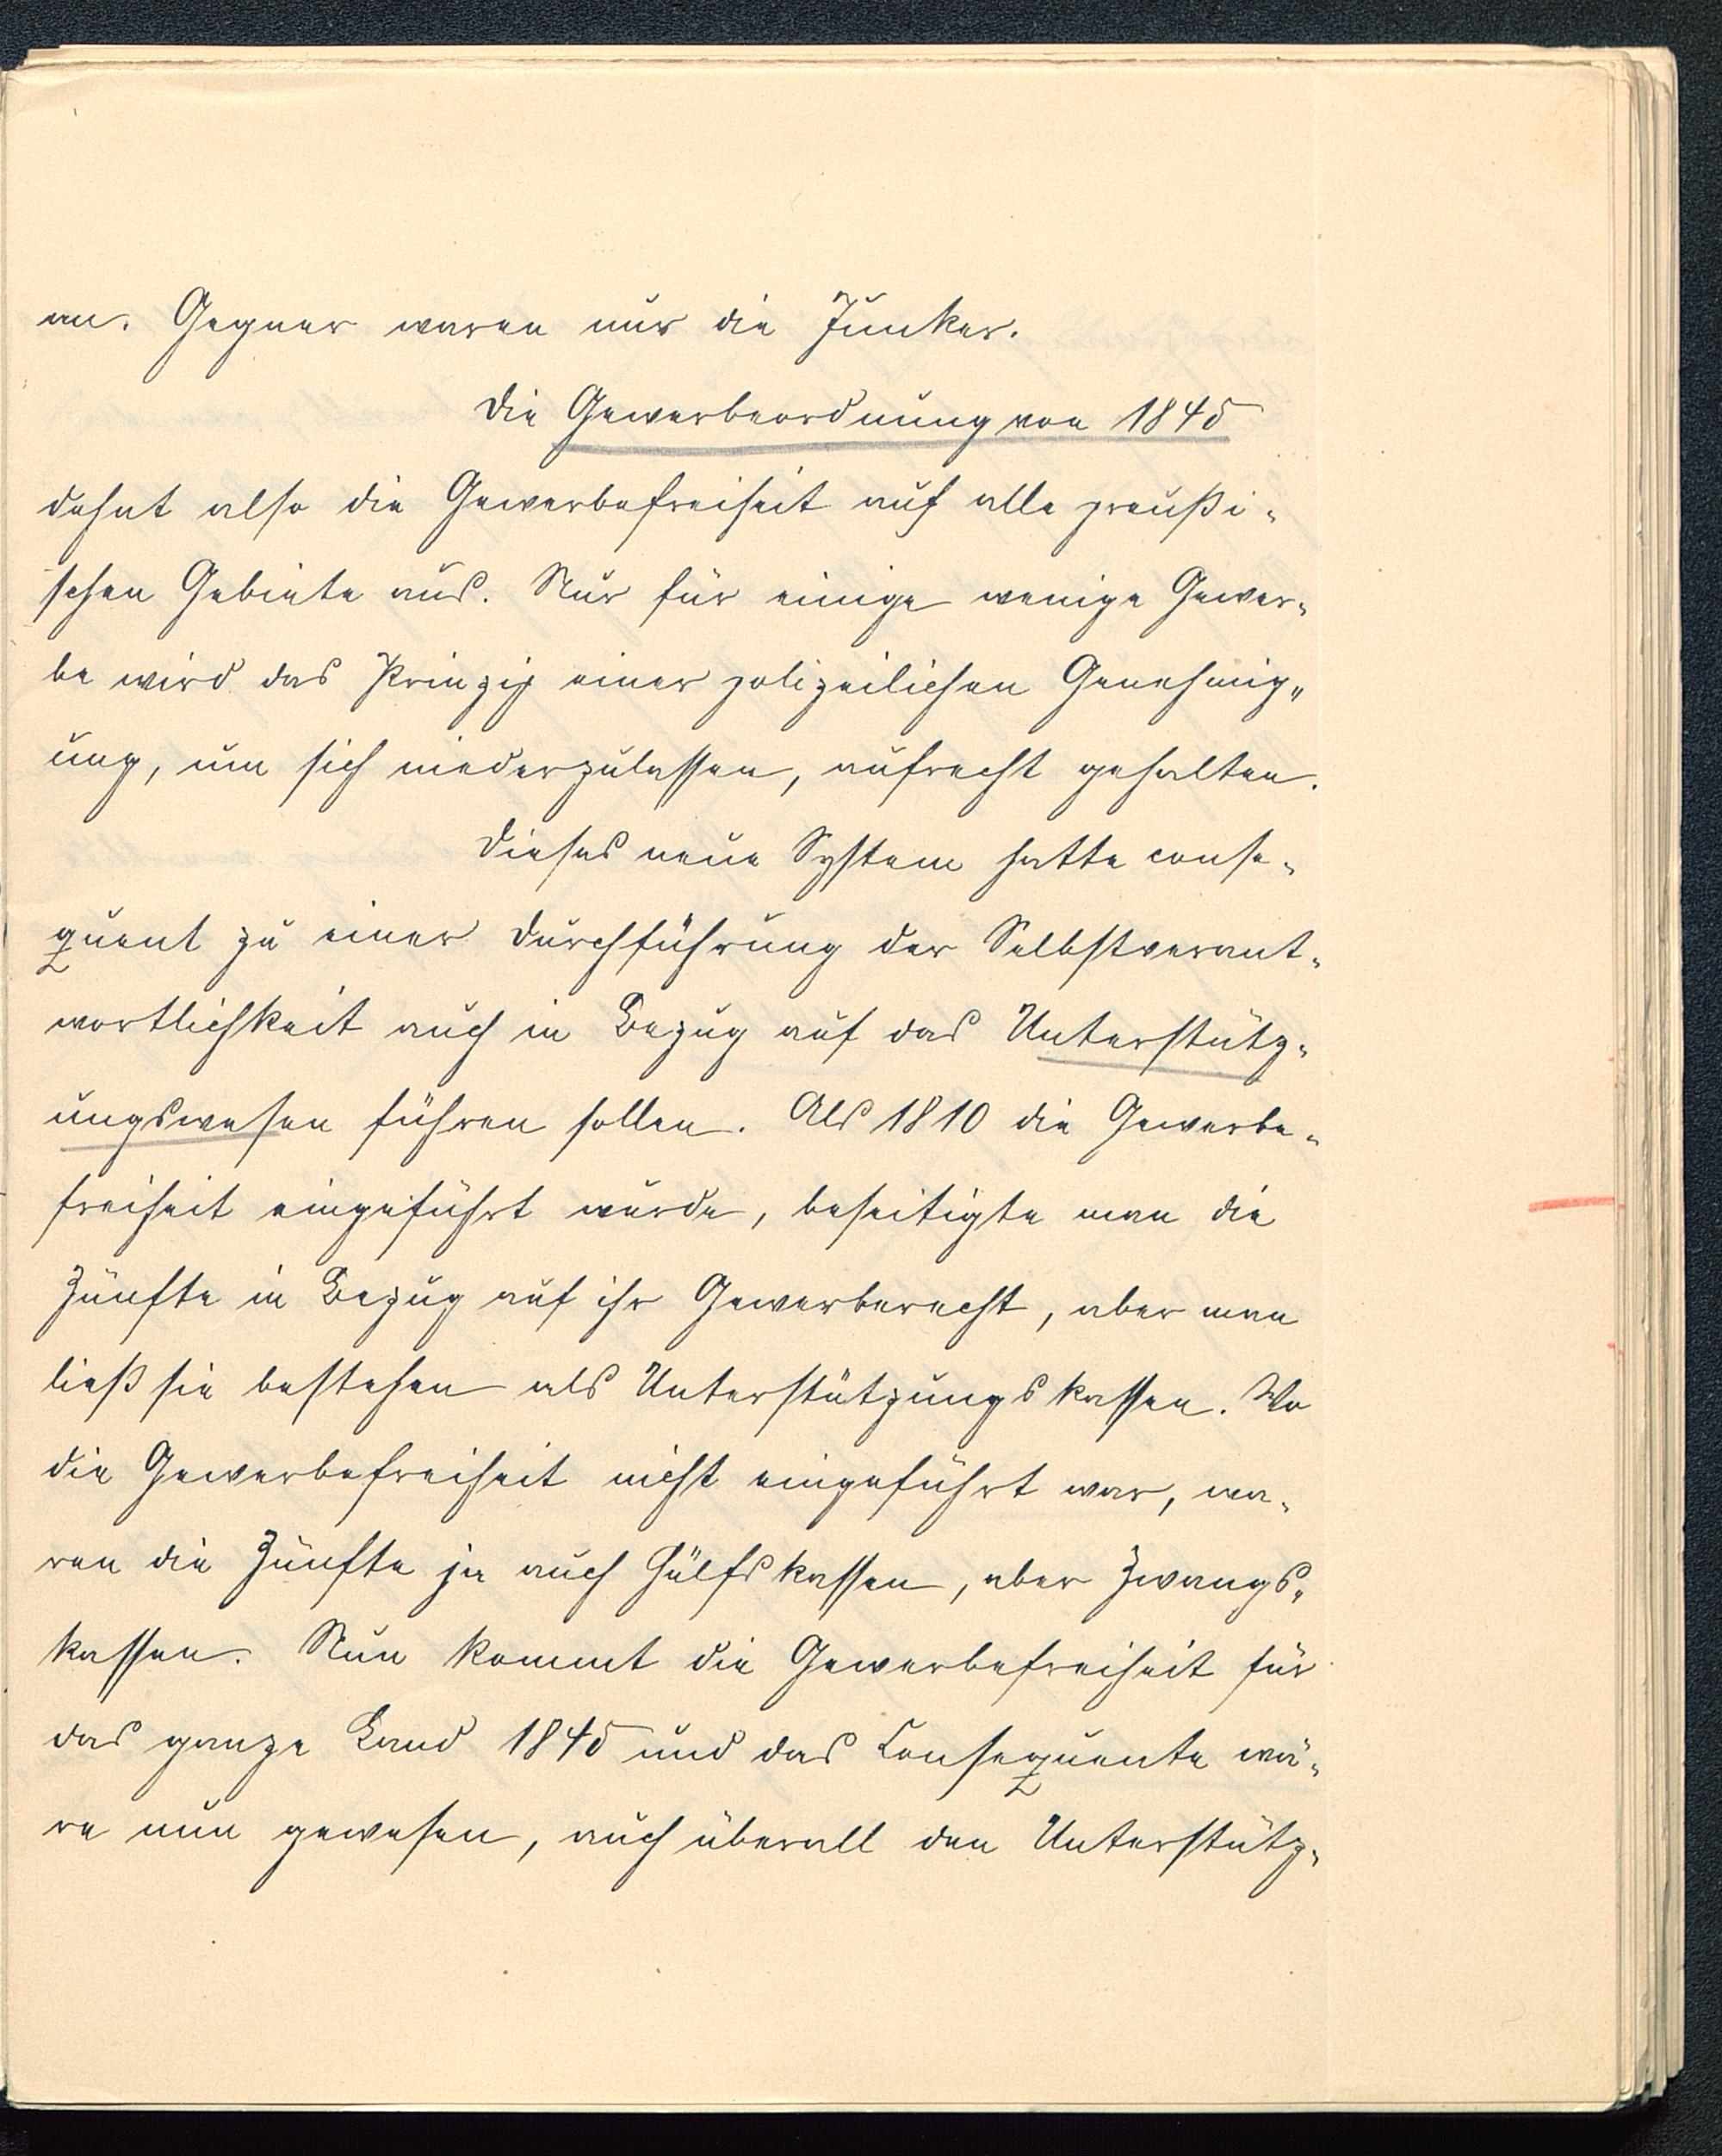 an. Gegner waren nur die Junker.
Die Gewerbeordnung von 1845
dehnt also die Gewerbefreiheit auf alle preußi-
schen Gebiete aus. Nur für einige wenige Gewer-
be wird das Prinzip einer polizeilichen Genehmig-
ung, um sich niederzulassen, aufrecht gehalten.
Dieses neue System hatte conse-
quent zu einer Durchführung der Selbstverant-
wortlichkeit auch in Bezug auf das Unterstütz-
ungswesen führen sollen. Als 1810 die Gewerbe-
freiheit eingeführt wurde, beseitigte man die
Zünfte in Bezug auf ihr Gewerberecht, aber man
ließ sie bestehen als Unterstützungskassen. Wo
die Gewerbefreiheit nicht eingeführt war, wa-
ren die Zünfte ja auch Hülfskassen, aber Zwangs-
kassen. Nun kommt die Gewerbefreiheit für
das ganze Land 1845 und das Consequente wä-
re nun gewesen, auch überall den Unterstütz-